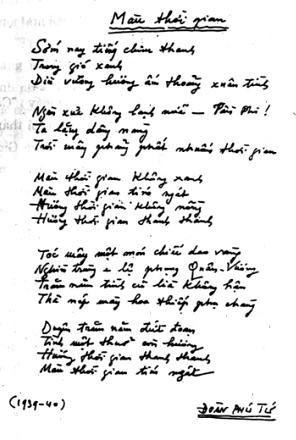 Màu thời gian
Sớm nay tiếng chim thanh
Trong gió xanh
Dìu vương hương ấm thoảng xuân tình
Ngàn xưa không lạnh nữa — Tần Phi!
Ta lặng dâng nàng
Trời mây phảng phất nhuốm thời gian
Màu thời gian không xanh
Màu thời gian tím ngát
Hương thời gian không nồng
Hương thời gian thanh thanh
Tóc mây một món chiếc dao vàng
Nghìn trùng e lệ phụng Quân-vương
Trăm năm tình cũ lìa không hận
Thà nép mày hoa thiếp phụ chàng
Duyên trăm năm đứt đoạn
Tình một thuở còn hương
Hương thời gian thanh thanh
Màu thời gian tím ngát
(1939-40)
ĐOÀN PHÚ TỨ